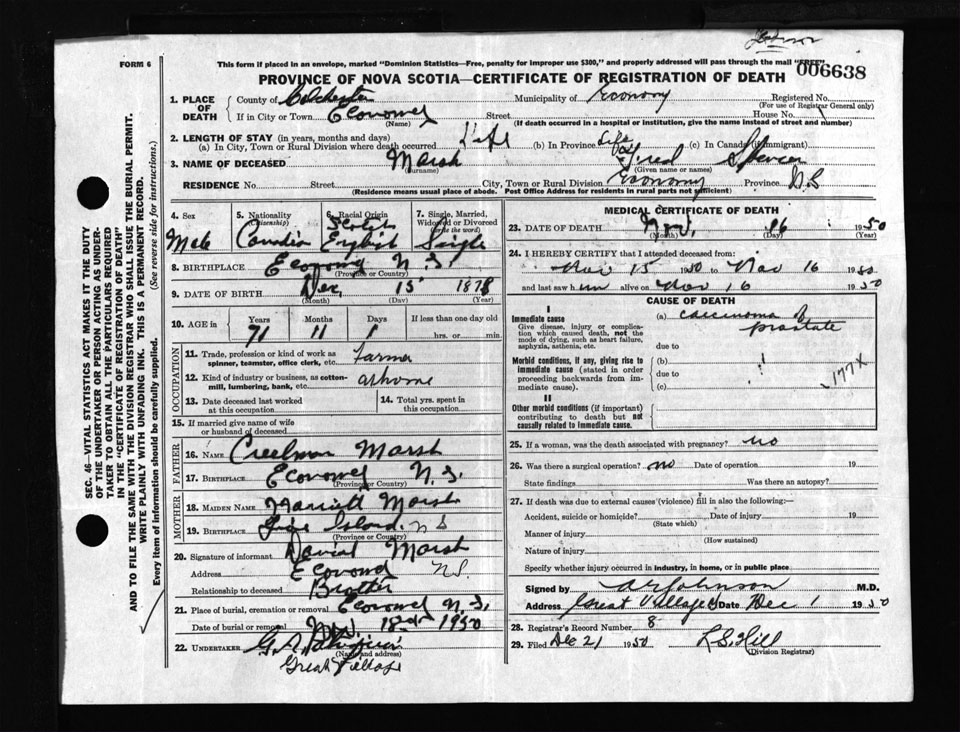 FORM 6
This form if placed in an envelope, marked "Dominion Statistics—Free, penalty for improper use $300," and properly addressed will pass through the mail "FREE"
006638
PROVINCE OF NOVA SCOTIA—CERTIFICATE OF REGISTRATION OF DEATH
1. PLACE OF DEATH County of Colchester Municipality of Economy Registered No.
(For use of Registrar General only)
If in City or Town Economy Street House No.
(Name) (If death occurred in a hospital or institution, give the name instead of street and number)
2. LENGTH OF STAY (in years, months and days)
(a) In City, Town or Rural Division where death occurred Life (b) In Province Life (c) In Canada (if immigrant)
3. NAME OF DECEASED Marsh Fred Spencer
(Surname) (Given name or names)
RESIDENCE No. Street City, Town or Rural Division Economy Province N.S
(Residence means usual place of abode. Post Office Address for residents in rural parts not sufficient)
4. Sex 5. Nationality 6. Racial Origin 7. Single, Married, Widowed or Divorced
(Citizenship) Scotch (write the word)
Male Canadian English Single
8. BIRTHPLACE Economy N.S.
(Province or Country)
9. DATE OF BIRTH Dec. 15 1878
(Month) (Day) (Year)
10. AGE in Years Months Days If less than one day old
71 11 1 hrs. or min.
OCCUPATION
11. Trade, profession or kind of work as spinner, teamster, office clerk, etc. Farmer
12. Kind of industry or business, as cotton-mill, lumbering, bank, etc. at home
13. Date deceased last worked at this occupation
14. Total yrs. spent in this occupation
15. If married give name of wife or husband of deceased
FATHER
16. NAME Creelman Marsh
17. BIRTHPLACE Economy N.S.
(Province or Country)
MOTHER
18. MAIDEN NAME Harriett Marsh
19. BIRTHPLACE Island. N S
(Province or Country)
20. Signature of informant David Marsh
Address Economy NS.
Relationship to deceased Brother
21. Place of burial, cremation or removal Economy N.S.
Date of burial or removal Nov. 18 1950
22. UNDERTAKER G. A.
(Name and address)
Great Village
MEDICAL CERTIFICATE OF DEATH
23. DATE OF DEATH Nov. 16 1950
(Month) (Day) (Year)
24. I HEREBY CERTIFY that I attended deceased from:
Nov 15 1950 to Nov 16 1950
and last saw him alive on Nov 16 1950
CAUSE OF DEATH
I
Immediate cause (a) carcinoma of prostate
Give disease, injury or complication which caused death, not the mode of dying, such as heart failure, asphyxia, asthenia, etc. due to
Morbid conditions, if any, giving rise to immediate cause (stated in order proceeding backwards from immediate cause). (b)
due to
(c)
177X
II
Other morbid conditions (if important) contributing to death but not causally related to immediate cause.
25. If a woman, was the death associated with pregnancy? no
26. Was there a surgical operation? no Date of operation 19
State findings Was there an autopsy?
27. If death was due to external causes (violence) fill in also the following:—
Accident, suicide or homicide? Date of injury 19
(State which)
Manner of injury
(How sustained)
Nature of injury
Specify whether injury occurred in industry, in home, or in public place
Signed by A R Johnson M.D.
Address Great Village NS Date Dec 1 1950
28. Registrar's Record Number 8
29. Filed Dec 21 1950 L.S. Hill
(Division Registrar)
SEC. 46—VITAL STATISTICS ACT MAKES IT THE DUTY
OF THE UNDERTAKER OR PERSON ACTING AS UNDER-
TAKER TO OBTAIN ALL THE PARTICULARS REQUIRED
IN THE "CERTIFICATE OF REGISTRATION OF DEATH"
AND TO FILE THE SAME WITH THE DIVISION REGISTRAR WHO SHALL ISSUE THE BURIAL PERMIT.
WRITE PLAINLY WITH UNFADING INK. THIS IS A PERMANENT RECORD.
Every item of information should be carefully supplied. (See reverse side for instructions.)